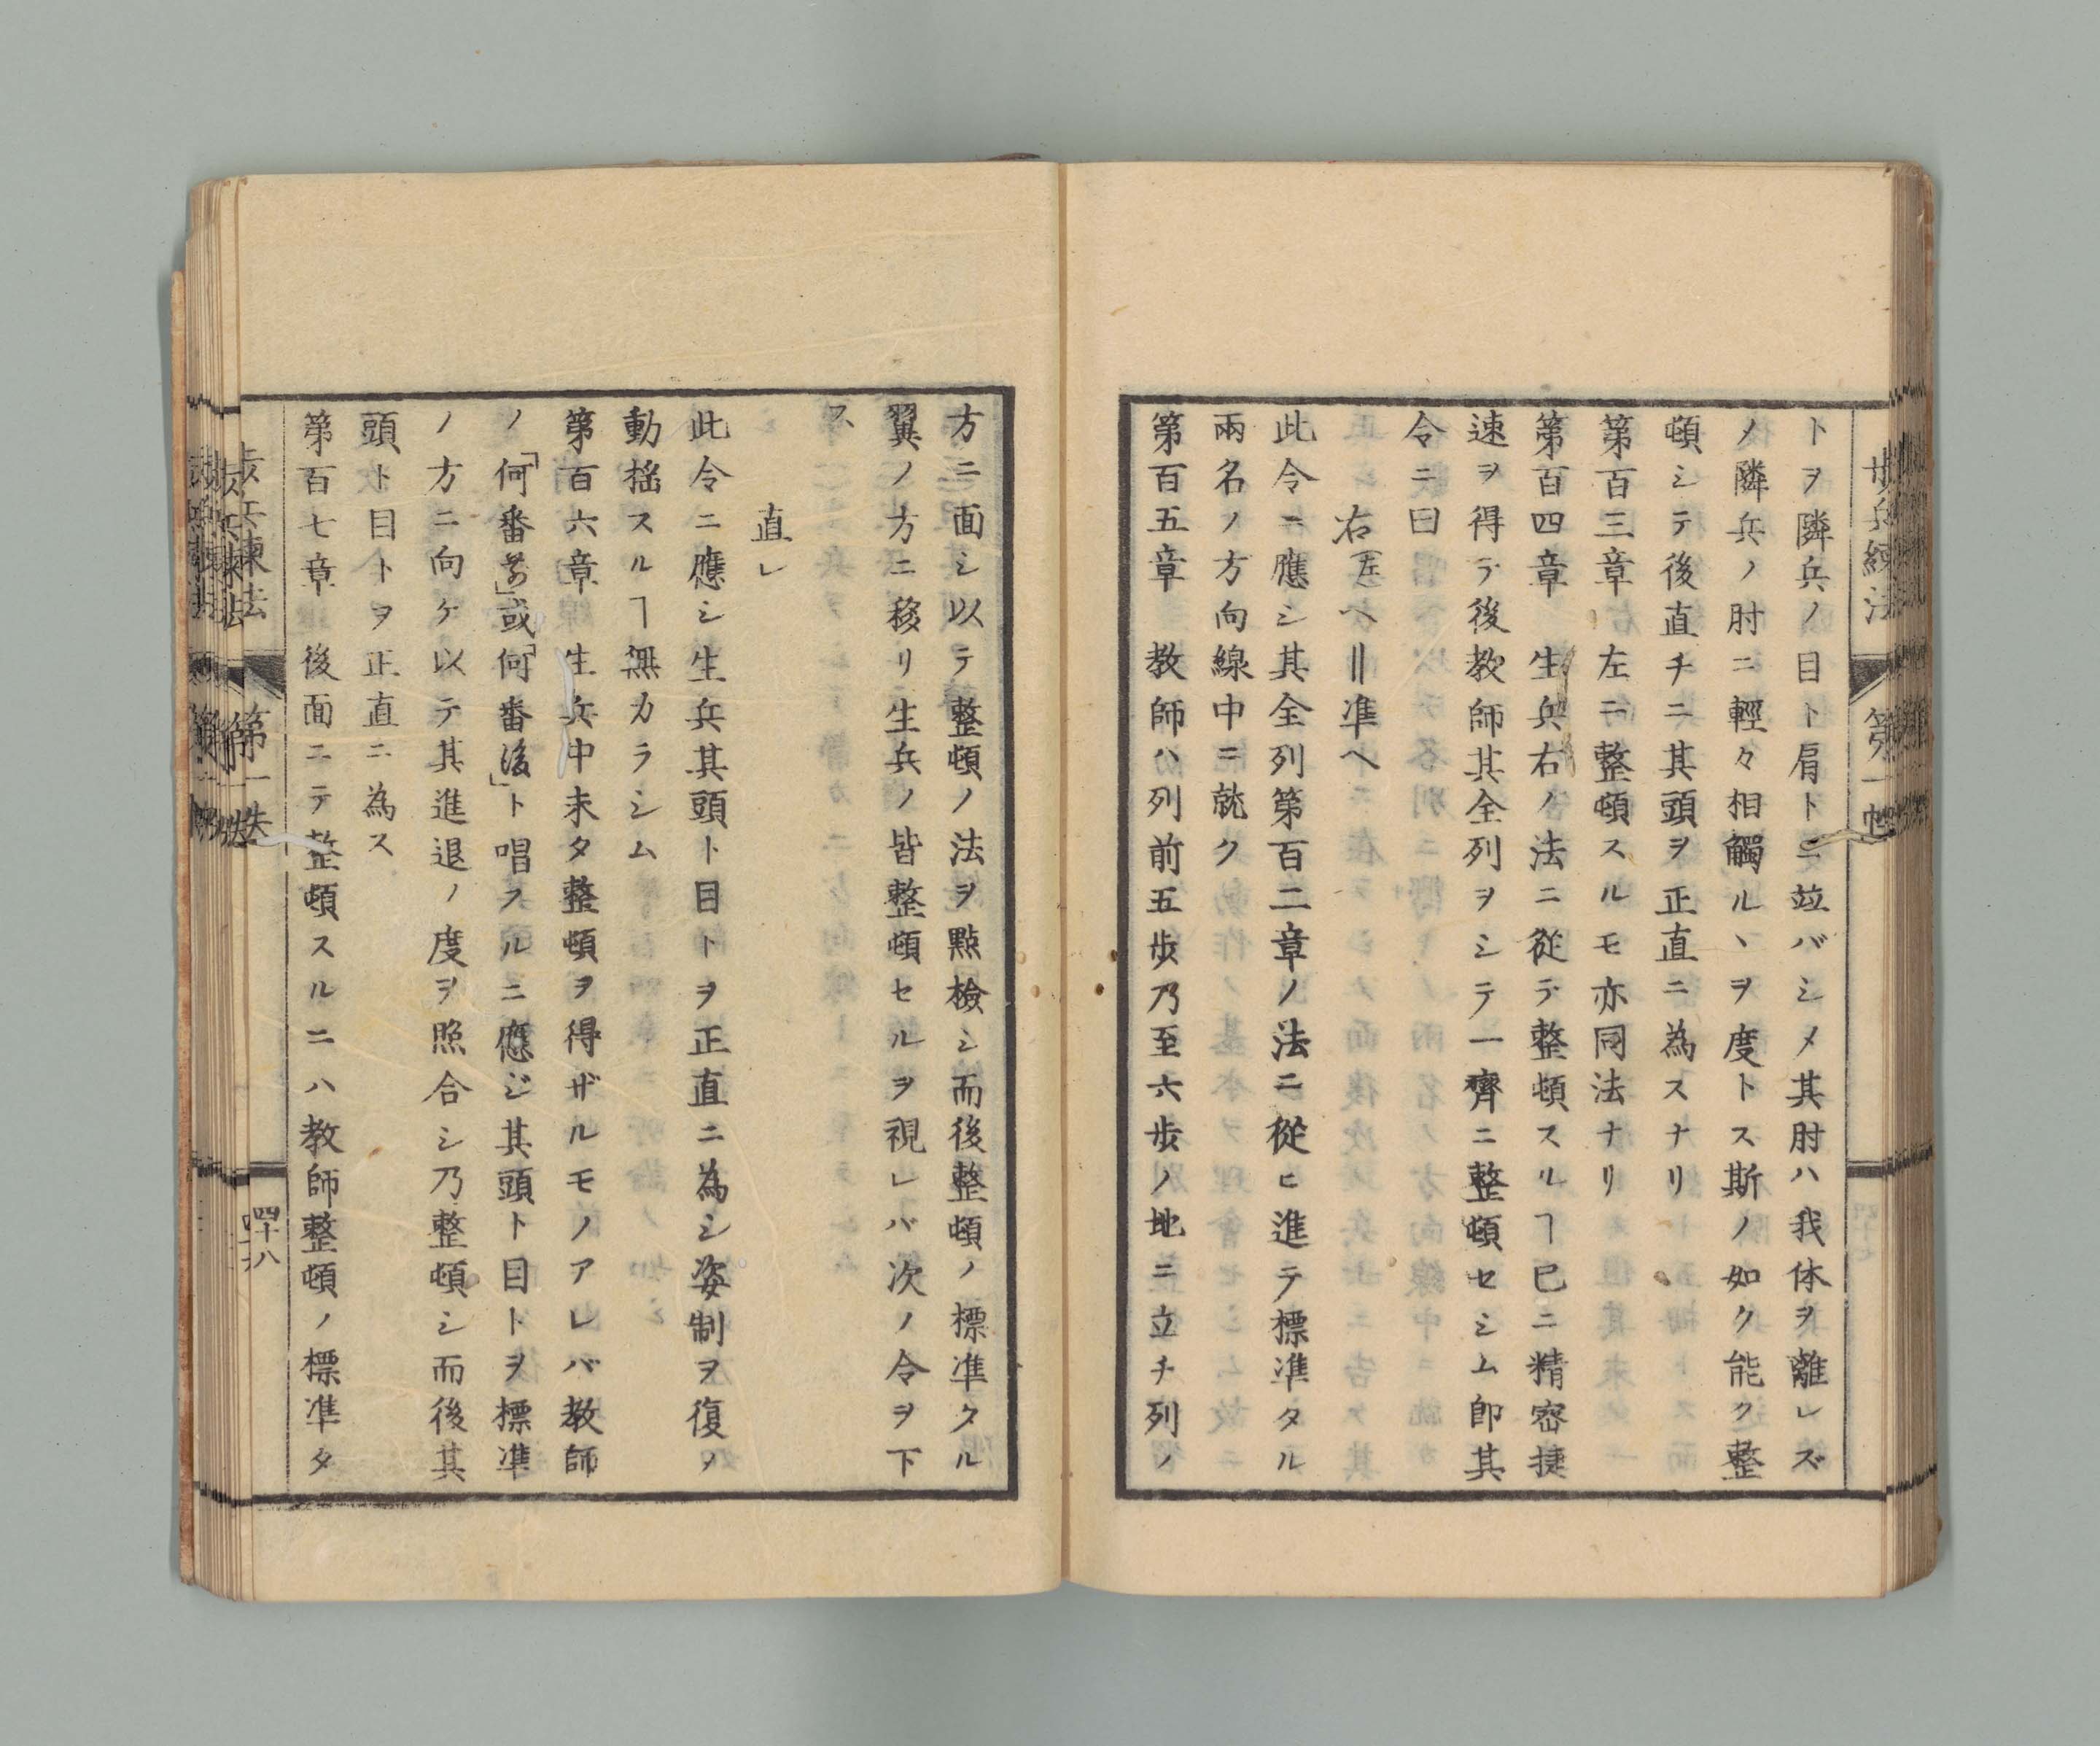 歩兵練法 第一帙
トヲ隣兵ノ目ト肩トニ竝バシメ其肘ハ我体ヲ離レズ
ノ隣兵ノ肘ニ輕々相觸ルヽヲ度トス斯ノ如ク能ク整
頓シテ後直チニ其頭ヲ正直ニ為スナリ
第百三章 左ニ整頓スルモ亦同法ナリ
第百四章 生兵右ノ法ニ從テ整頓スルヿ已ニ精密捷
速ヲ得テ後教師其全列ヲシテ一齊ニ整頓セシム即其
令ニ曰
右左ヘ‖準ヘ
此令ニ應シ其全列第百二章ノ法ニ從ヒ進テ標準タル
兩名ノ方向線中ニ就ク
第百五章 教師ハ列前五歩乃至六歩ノ地ニ立チ列ノ
方ニ面シ以テ整頓ノ法ヲ點檢シ而後整頓ノ標準タル
翼ノ方ニ移リ生兵ノ皆整頓セルヲ視レバ次ノ令ヲ下
ス
直レ
此令ニ應シ生兵其頭ト目トヲ正直ニ為シ姿制ヲ復ノ
動搖スルヿ無カラシム
第百六章 生兵中未タ整頓ヲ得ザルモノアレバ教師
ノ「何番前」或「何番後」ト唱フルニ應ジ其頭ト目トヲ標準
ノ方ニ向ケ以テ其進退ノ度ヲ照合シ乃整頓シ而後其
頭ト目トヲ正直ニ為ス
第百七章 後面ニテ整頓スルニハ教師整頓ノ標準タ
歩兵練法 第一帙 四十八